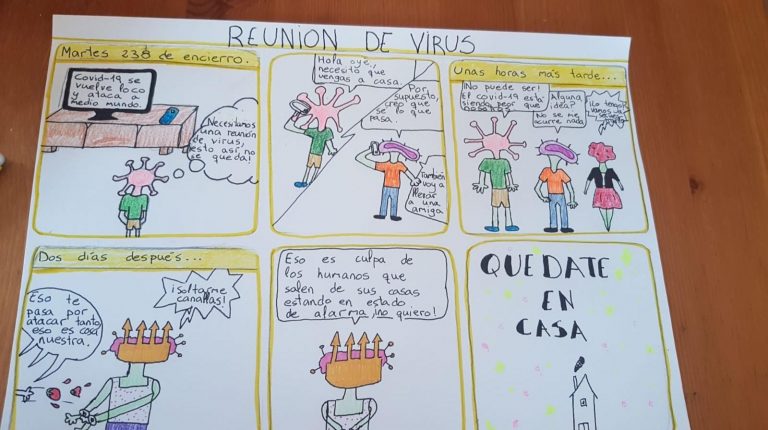 REUNION DE VIRUS
Martes 23 de encierro.
Covid-19 se
vuelve loco
y ataca a
medio mundo.
Necesitamos
una reunión
de virus,
esto así, no
se queda!
Hola oye,
necesito que
vengas a casa.
Por
supuesto,
creo que
se lo que
pasa.
También
voy a
llevar
a una
amiga.
Unas horas más tarde...
¡No puede ser!
El covid-19 está
siendo peor que
nosotros
Alguna
idea?
No se me
ocurre nada
¡Lo tengo!
vamos a
Dos días después...
Eso te
pasa por
atacar tanto
eso es cosa
nuestra.
¡Soltarme
canallas!
Eso es culpa de
los humanos que
salen de sus casas
estando en estado
de alarma ¡no quiero!
QUEDATE
EN
CASA